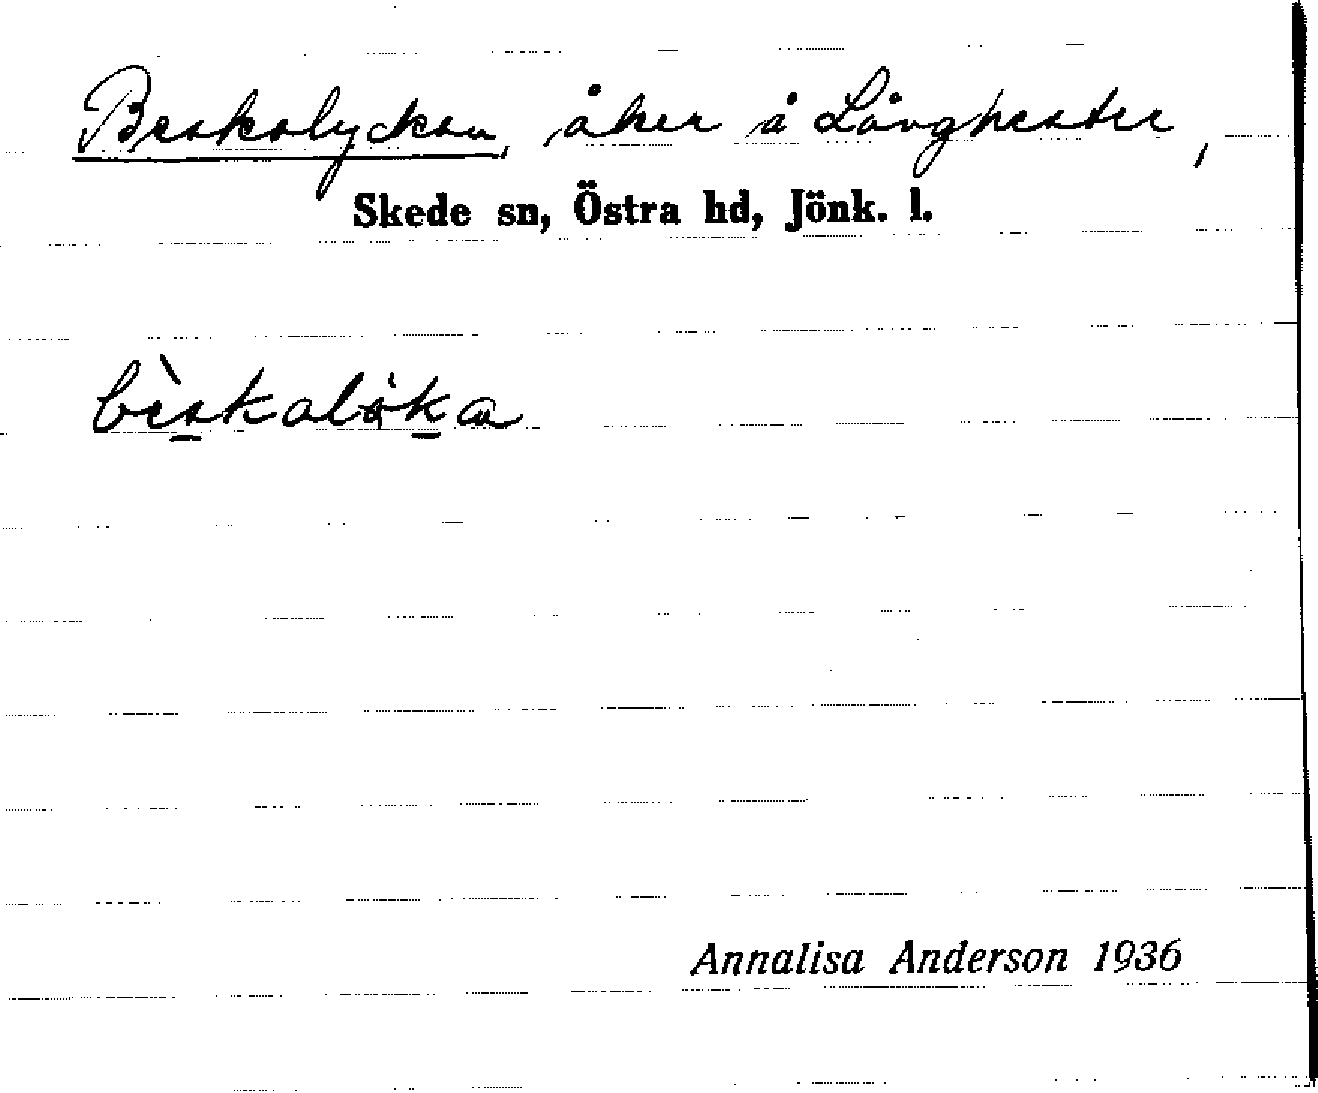 Beskolyckan, åker å Lövghester,
Skede sn, Östra hd, Jönk. l.
bèskaløka
Annalisa Anderson 1936